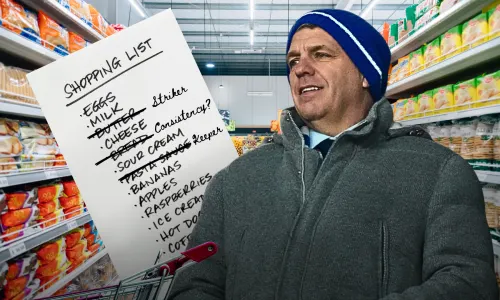 SHOPPING LIST
·EGGS
·MILK
·BUTTER Striker
·CHEESE
·BREAD Consistency?
·SOUR CREAM
·PASTA SAUCE Keeper
·BANANAS
·APPLES
·RASPBERRIES
·ICE CREA
·HOT DO
·COF